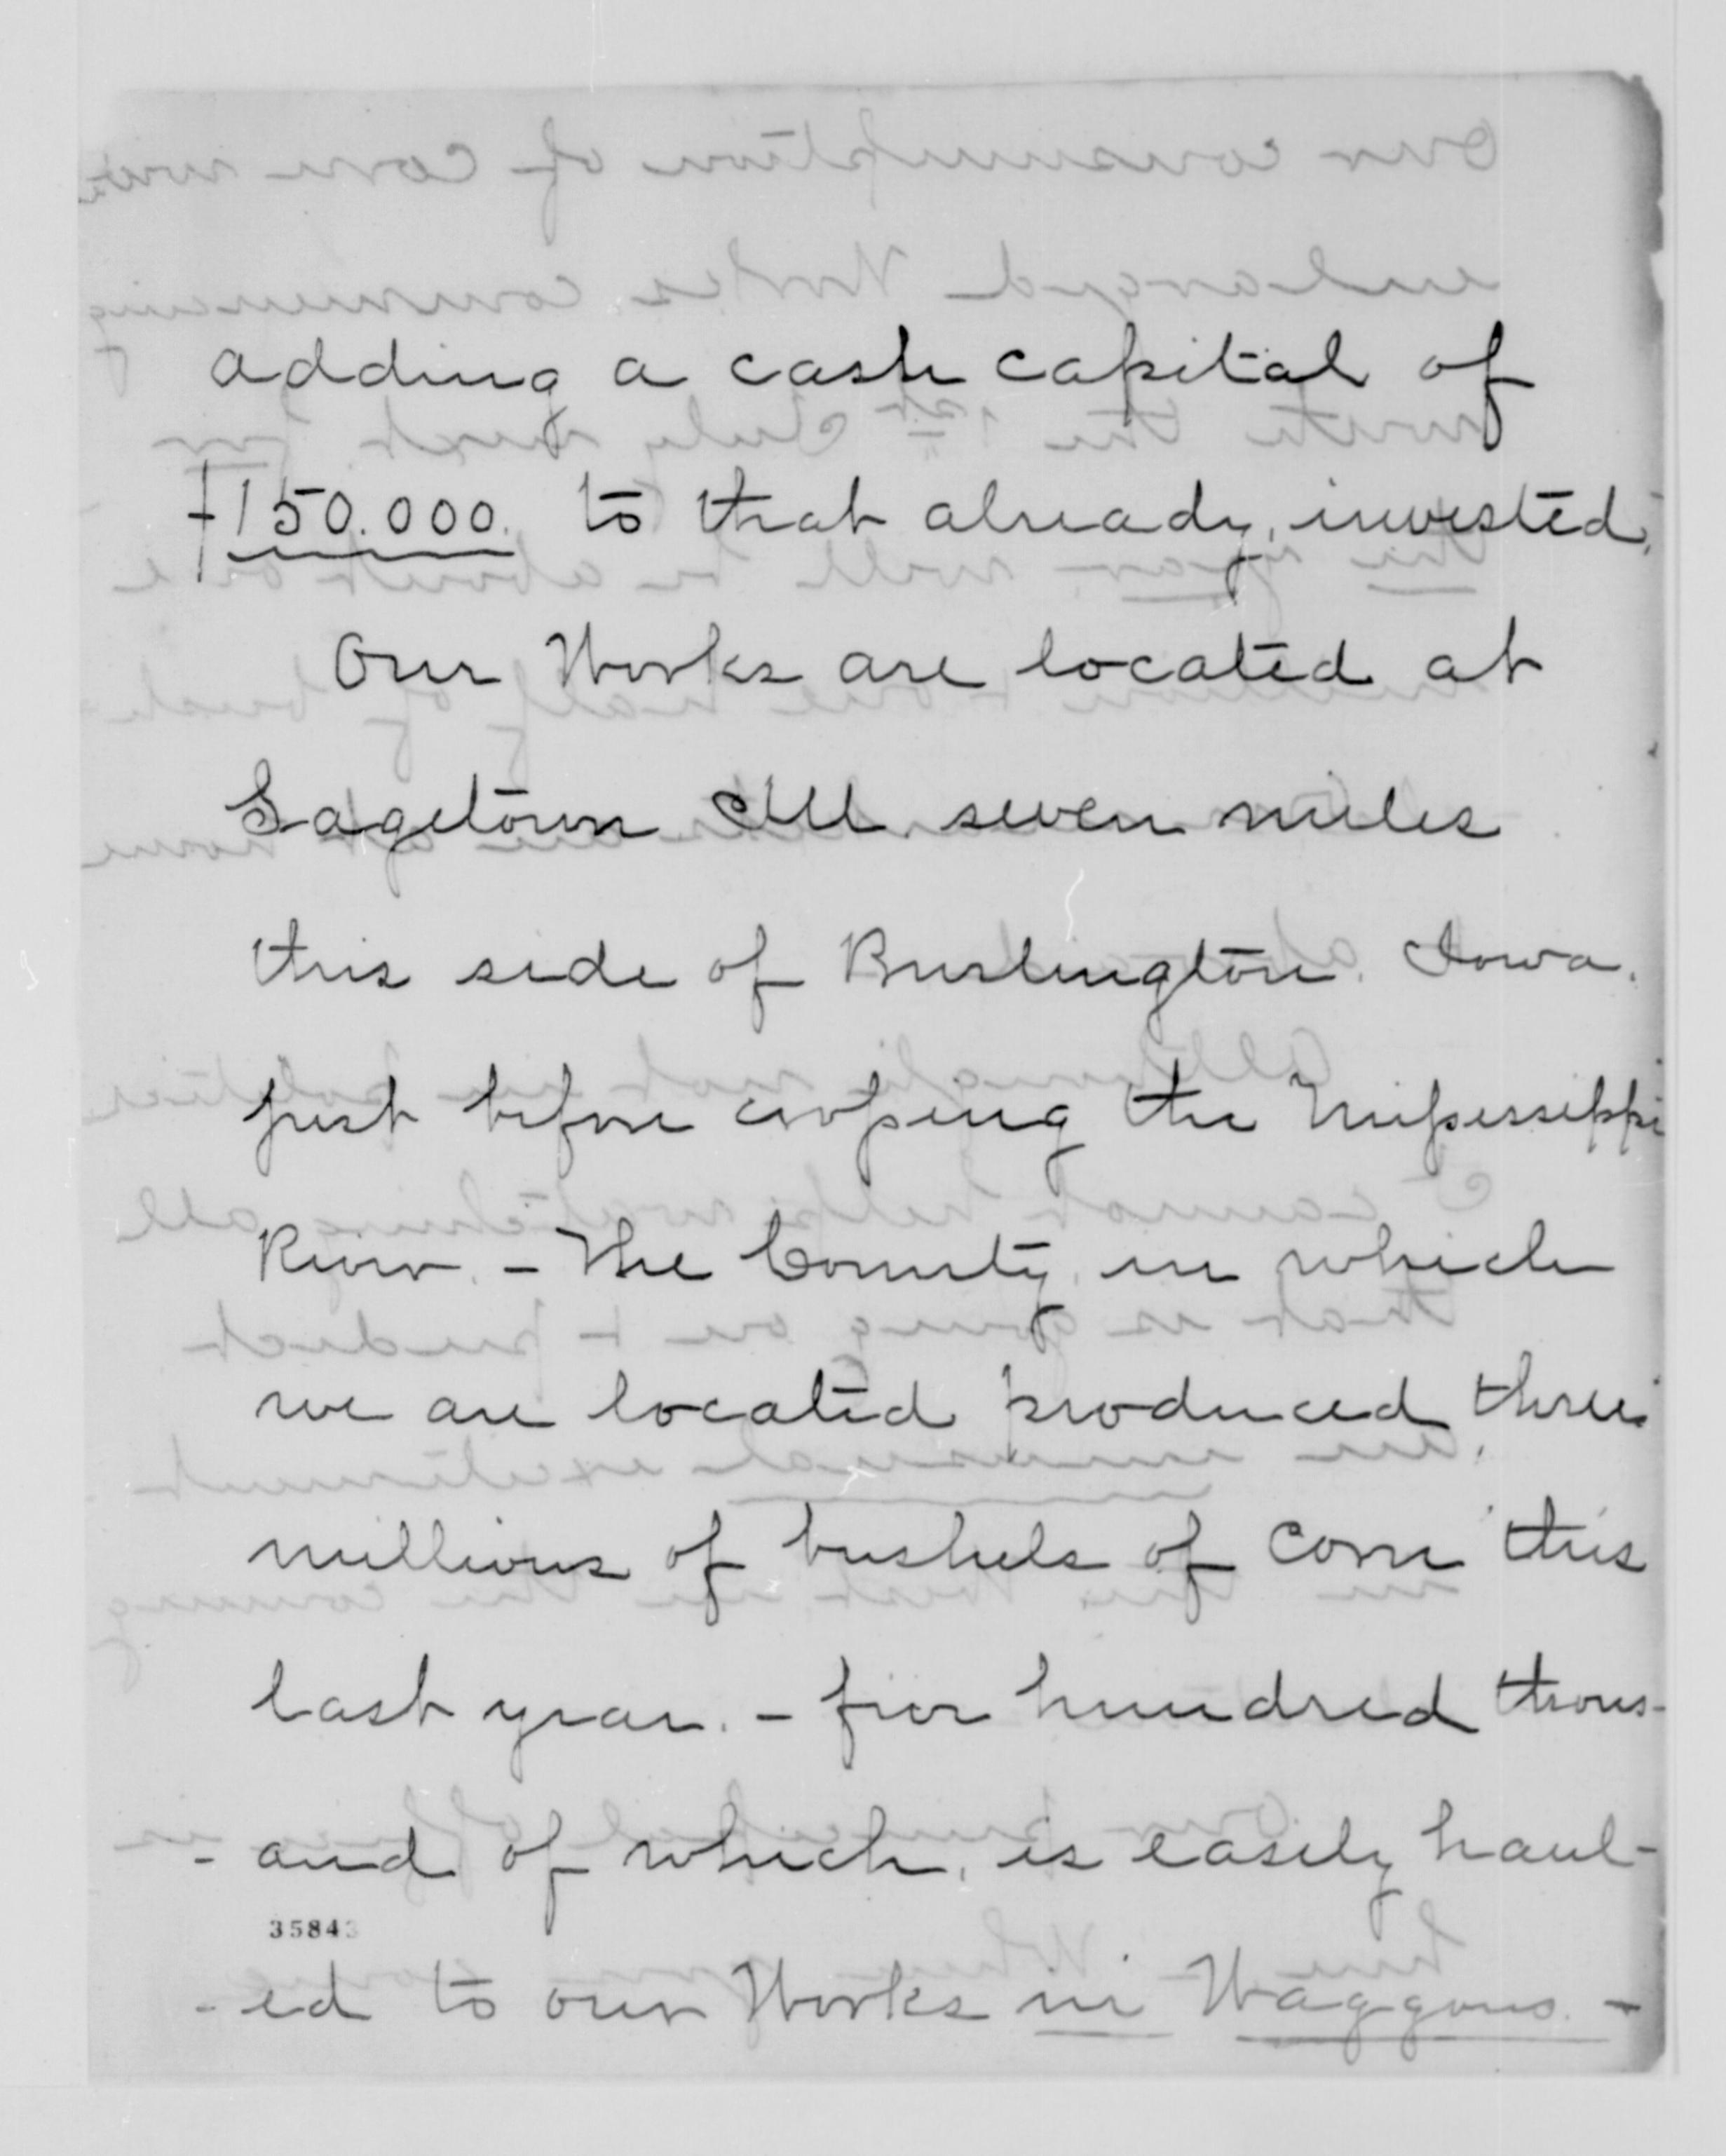 adding a cash capital of
$150.000. to that already, invested.
Our Works are located at
Sagetown Ill. seven miles
this side of Burlington. Iowa.
just before crossing the Mississippi
River. - The County, in which
we are located produced three
millions of bushels of corn this
last year. - five hundred thous-
- and of which, is easily haul-
35843
- ed to our Works in Waggons. -